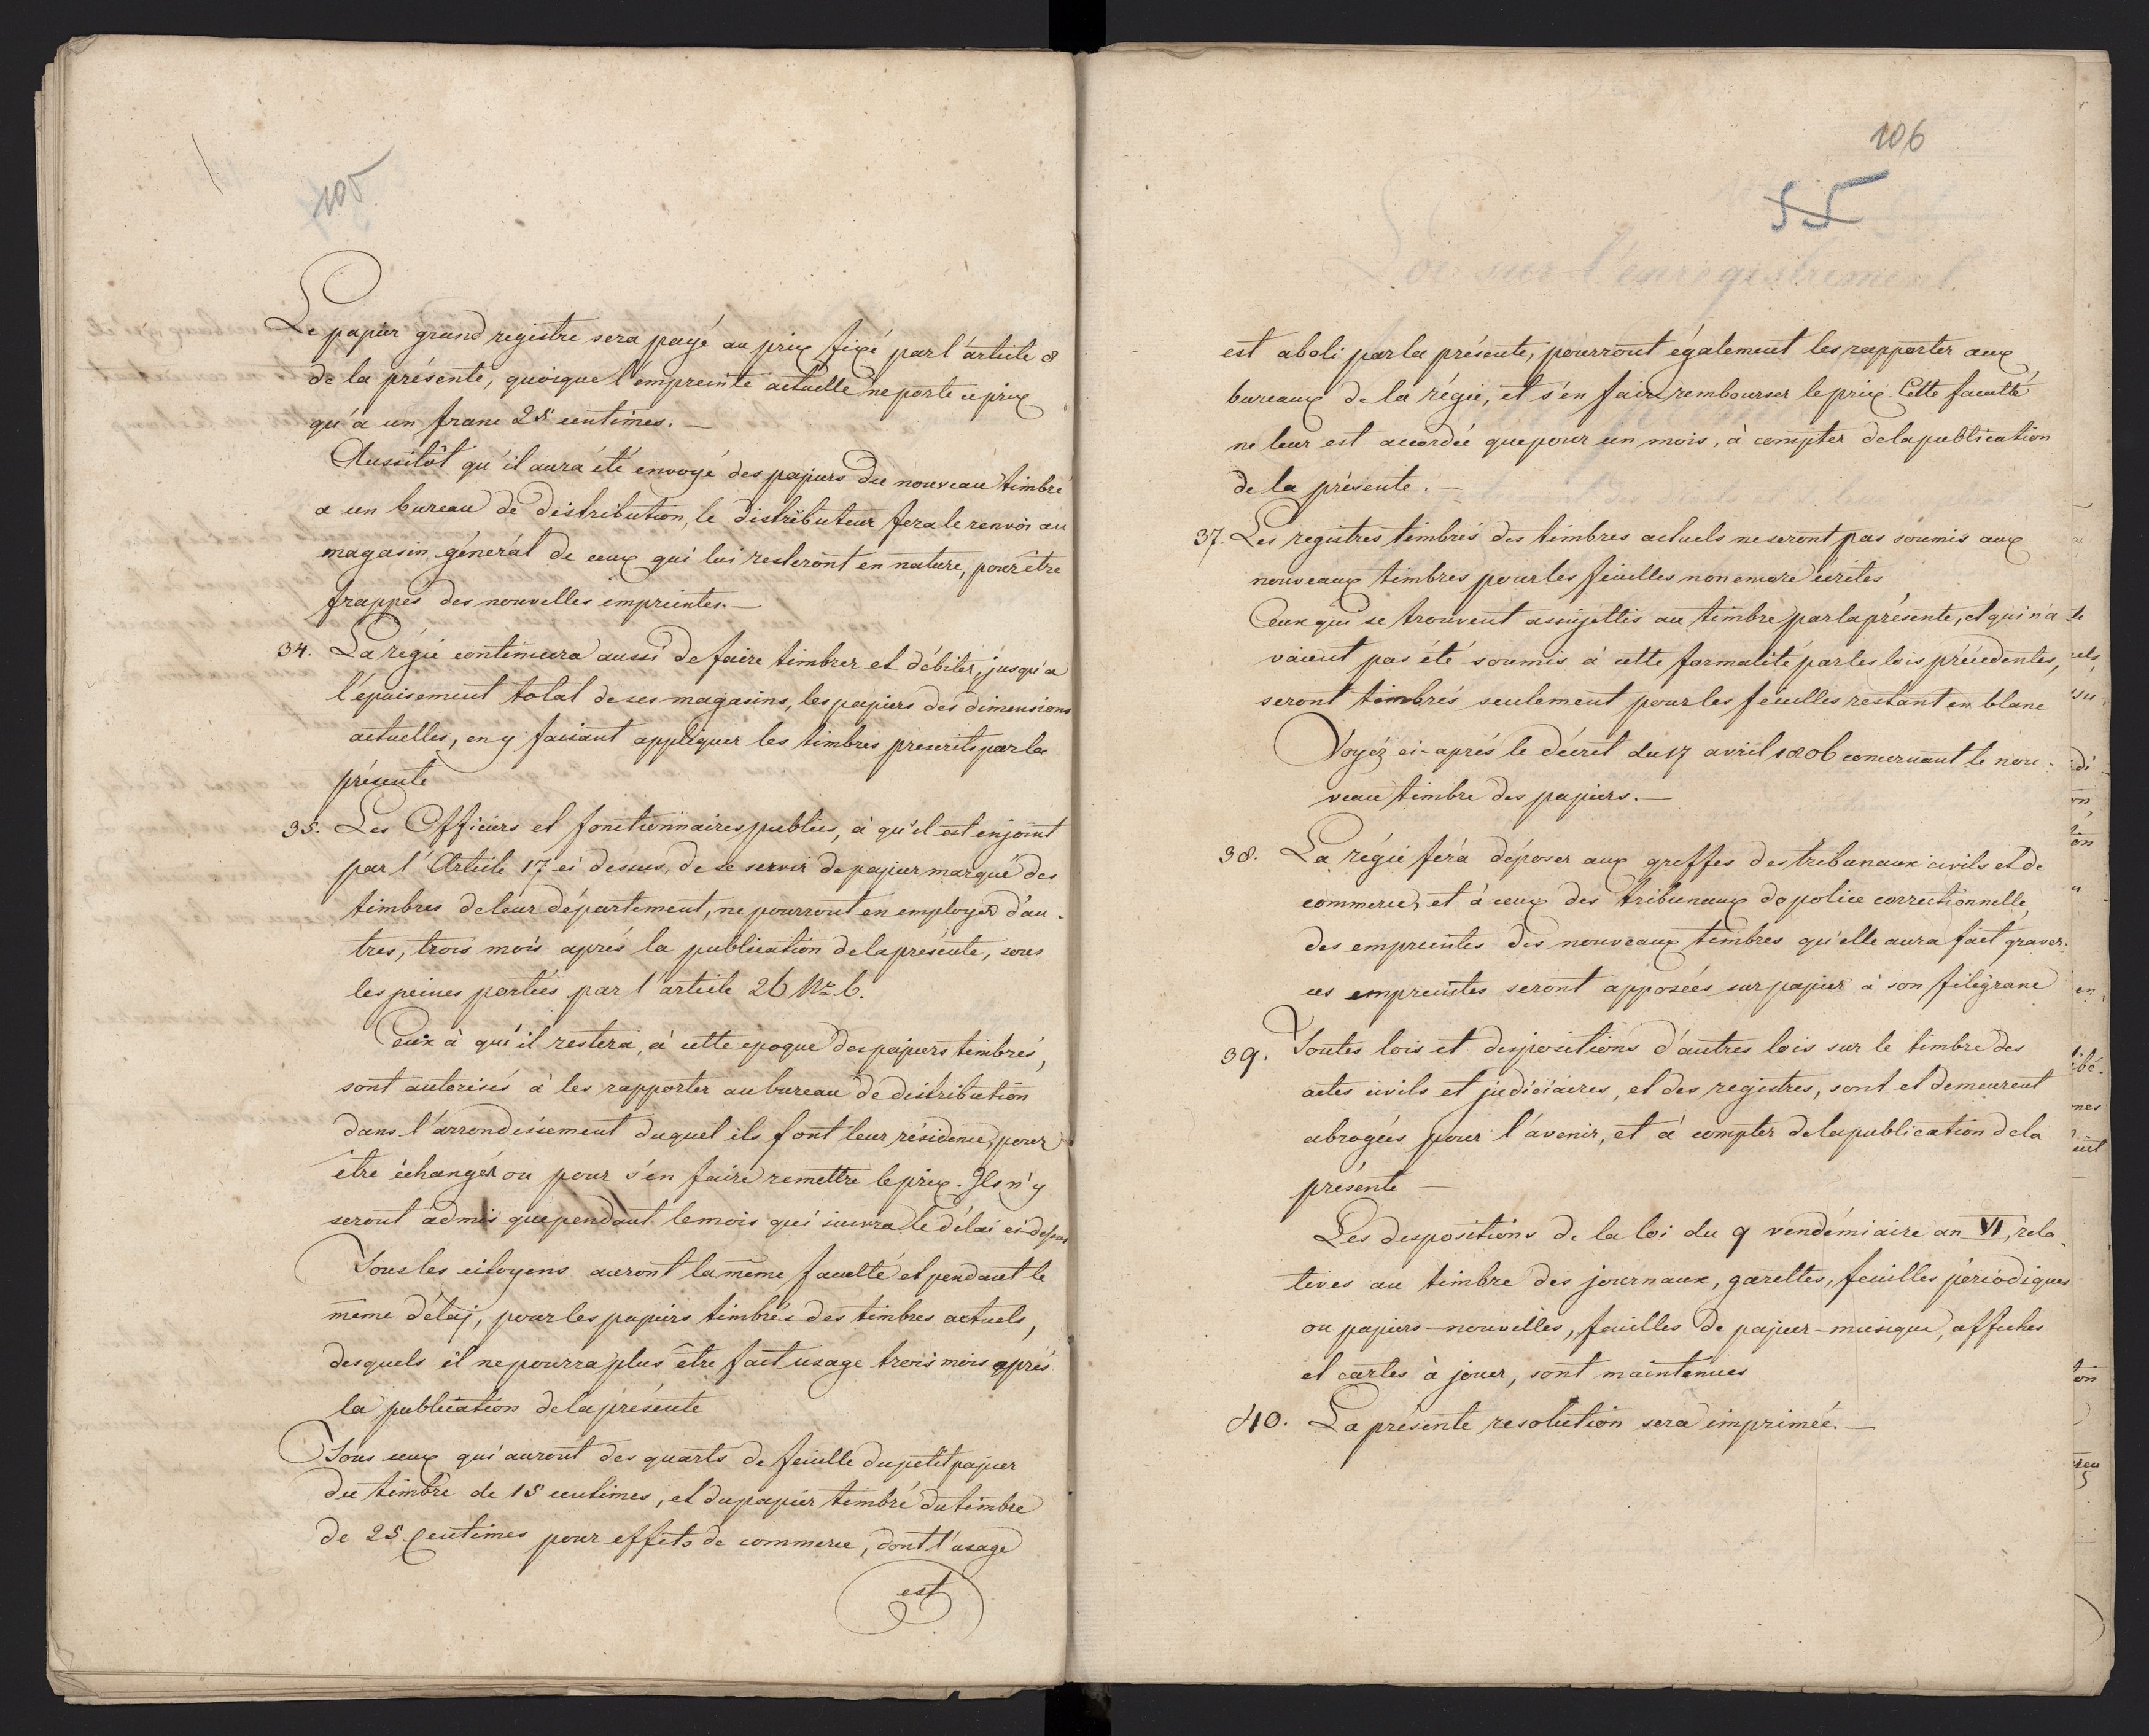 105
Le papier grand registre sera payé au prix fixé par l'article 8
de la présente, quoique l'empreinte actuelle ne porte ce prix
qu'à un franc 25 centimes. —
Aussitôt qu'il aura été envoyé des papiers du nouveau timbre
a un bureau de distribution, le distributeur fera le renvoi au
magasin général de ceux qui lui resteront en nature, pour être
frappés des nouvelles empreintes. —
34. La régie continuera aussi de faire timbrer et débiter, jusqu'a
l'épuisement total de ses magasins, les papiers des dimensions
actuelles, en y faisant appliquer les timbres prescrits par la
présente
35. Les Officiers et fonctionnaires publics, à qu'il est enjoint
par l'Article 17 ci dessus, de se servir de papier marqué des
timbres de leur département, ne pourront en employer d'au-
tres, trois mois après la publication de la présente, sous
les peines portées par l'article 26 No 6.
Ceux à qui il restera, à cette epoque des papiers timbrés,
sont autorisés à les rapporter au bureau de distribution
dans l'arrondissement duquel ils font leur résidence, pour
être échangér ou pour s'en faire remettre le prix. Ils n'y
seront admis que pendant le mois qui suivra le délai ci-dessus
Tous les citoyens auront la même faculté et pendant le
même délaj, pour les papiers timbrés des timbres actuels,
desquels il ne pourra plus être fait usage trois mois après
la publication de la présente
Tous ceux qui auront des quarts de feuille du petit papier
du timbre de 15 centimes, et du papier timbré du timbre
de 25 Centimes pour effets de commerce, dont l'usage
est
106
55
est aboli par la présente, pourront également les rapporter aux
bureaux de la régie, et s'en faire rembourser le prix. Cette faculté
ne leur est accordée que pour un mois, à compter de la publication
de la présente. —
37. Les registres timbrés des timbres actuels ne seront pas soumis aux
nouveaux timbres pour les feuilles non encore écrites
Ceux qui se trouvent assujettis au timbre par la présente, et qui n'a
vaient pas été soumis à cette formalité par les lois précédentes,
seront timbrés seulement pour les feuilles restant en blanc
Voyéz ci-après le décret du 17 avril 1806 concernant le nou-
veau timbre des papiers. —
38. La régie féra déposer aux greffes des tribunaux civils et de
commerce, et à ceux des tribunaux de police correctionnelle,
des empreintes des nouveaux timbres qu'elle aura fait graver.
ces empreintes seront apposées sur papier à son filigrane
39. Toutes lois et dispositions d'autres lois sur le timbre des
actes civils et judiciaires, et des registres, sont et demeurent
abrogées pour l'avenir, et à compter de la publication de la
présente —
Les dispositions de la loi du 9 vendémiaire an VI, rela-
tives au timbre des journaux, gazettes, feuilles périodiques
ou papiers-nouvelles, feuilles de papier-musique, affiches
et cartes à jouer, sont maintenues
40. La présente resolution sera imprimée. —